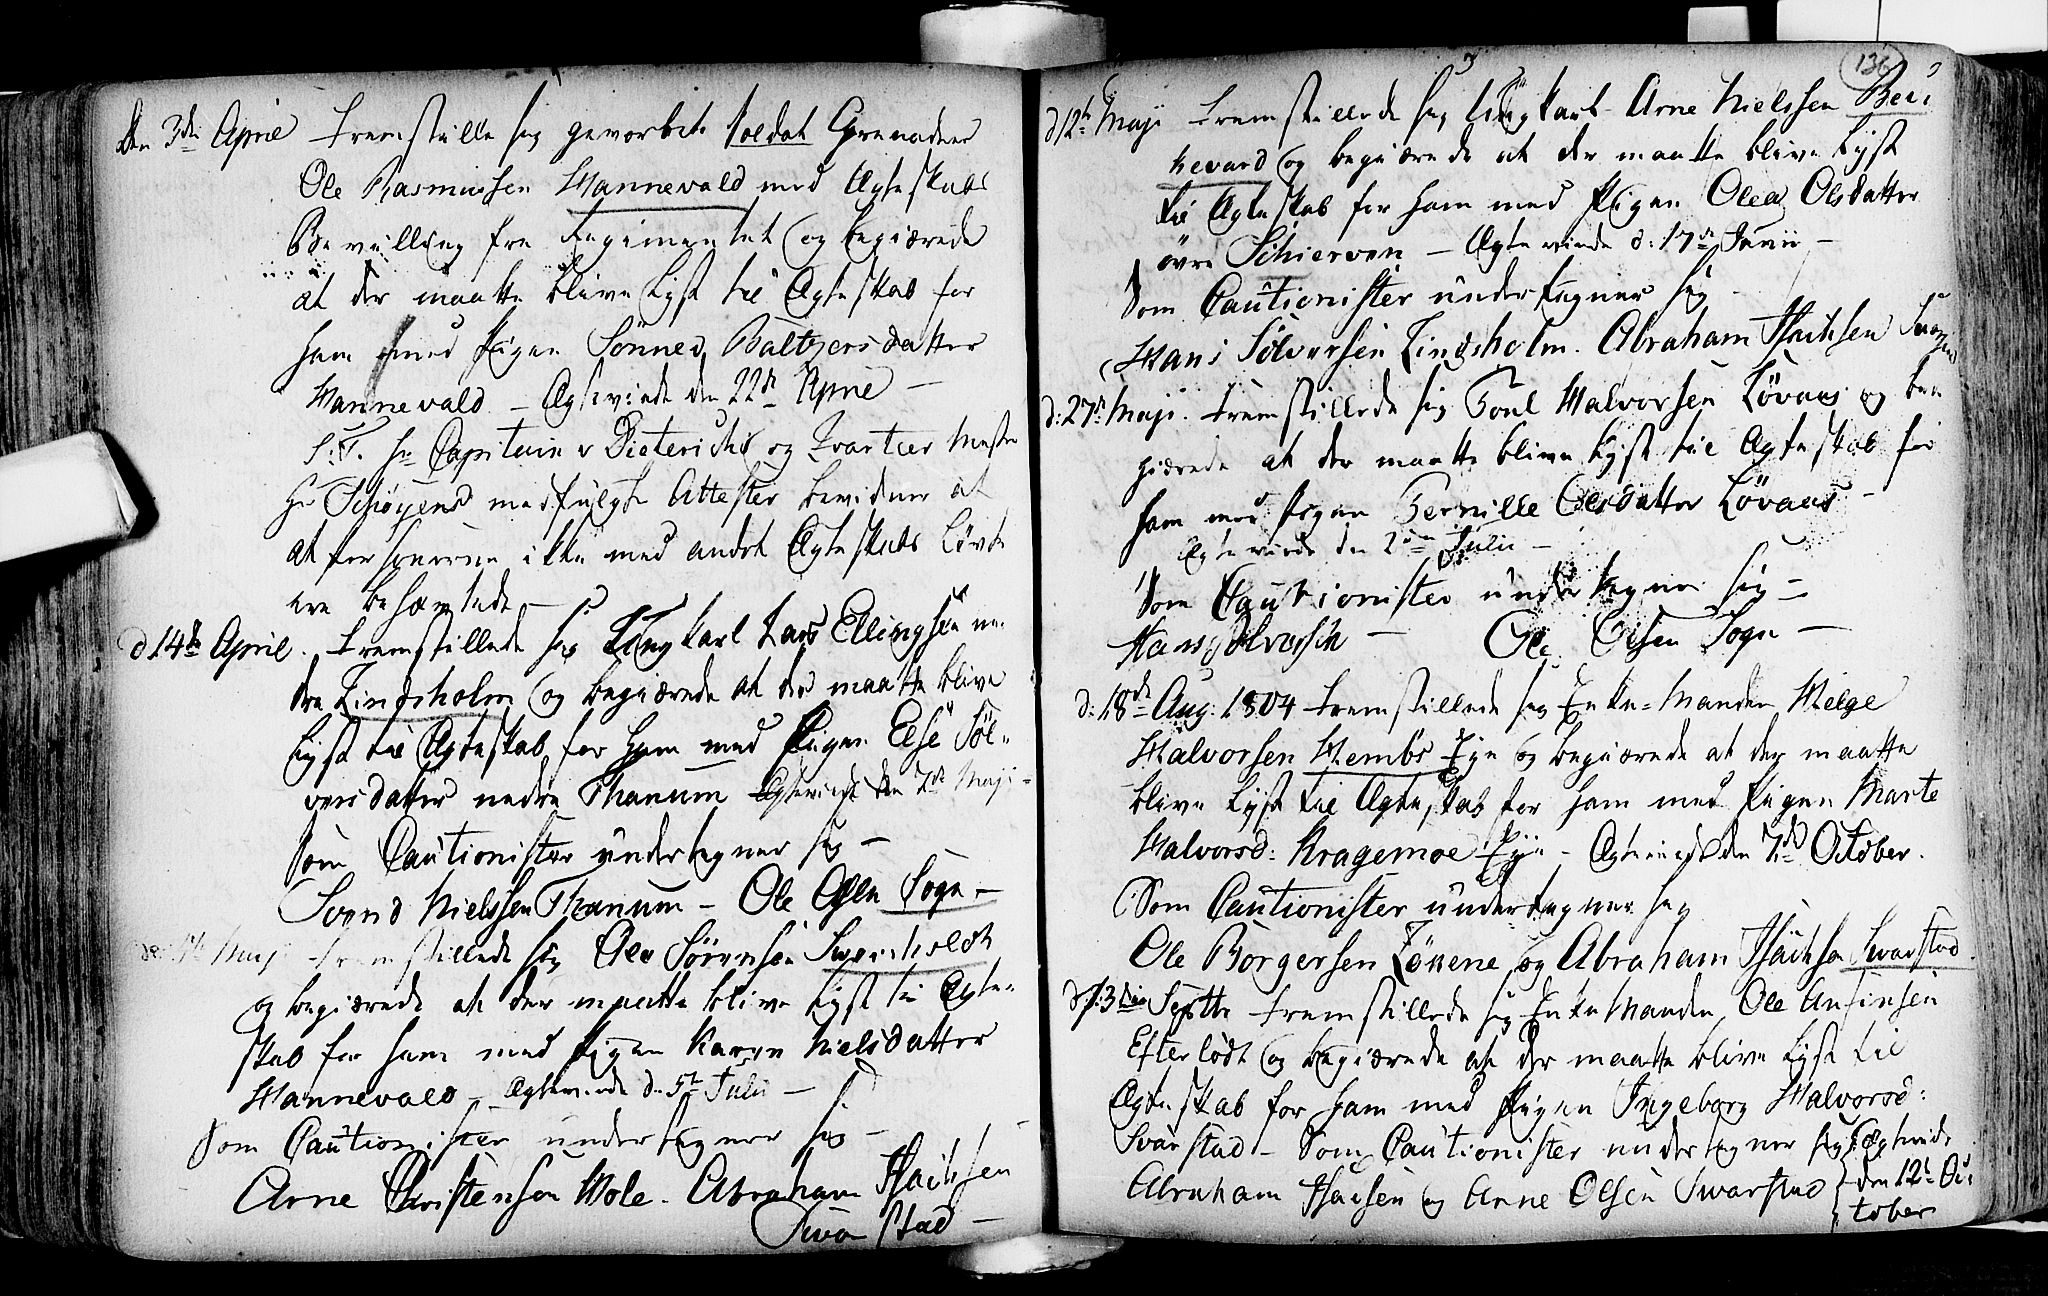 den 3die April fremstille sig gevorbne Soldat Grenadeer
Ole Rasmussen Hannevold med Ægteskabs
Bevilling fra Regimentet og begiærede
at der maatte blive Lyst til Ægteskab for
ham med Pigen Sønnev Baltzersdatter
Hannevald – Ægteviede den 22de April –
S:T. Hr Capitain v Dieterichs og Qvarteer Mester
Hr Schøyens medfulgte Attester bevidner at
at personerne ikke med andet Ægteskabs Løvte
ere behæftede –
d 14de April. fremstillede sig Ungkarl Lars Ellingsen ne-
dre Lindsholm og begiærede at der maatte blive
Lyst til Ægteskab for ham med Pigen Else Søl-
versdatter nedre Thanum Ægteviede den 7de Maji –
Som Cautionister undertegner sig –
Svend Nielssen Thanum – Ole Olsen Sogn –
Maji fremstillede sig Ole Sørensen Sverisholdt
og begiærede at der maatte blive Lyst til Ægte-
skab for ham med Pigen Karen Nielsdatter
Hannevald – Ægteviede d. 5te Julii –
Som Cautionister undertegner sig –
Arne Christensen Hole. Abraham Isachsen
Svarstad –
136
d 12te Maji fremstillede sig Ungkarl Arne Nielssen Ber-
kevard og begiærede at der maatte blive Lyst
til Ægteskab for ham med Pigen Olea Olsdatter
øvre Schierven – Ægteviede d: 17de Junii –
Som Cautionister undertegner sig –
Hans Sølversen Lindsholm. Abraham Isachsen
d: 27de Maji. fremstillede sig Poul Halvorsen Løvaas og be-
giærede at der maatte blive Lyst til Ægteskab for
ham med Pigen Pernille Olesdatter Løvaas –
Ægteviede den Julii –
Som Cautionister undertegner sig –
Hans Sølversen – Ole Olsen Sogn –
d: 18de Aug: 1804 fremstillede sig Enke-Manden Helge
Halvorsen Hembs Eje og begiærede at der maatte
blive Lyst til Ægteskab for ham med Pigen Marte
Halvorsd: Kragemoe Eje – Ægteviede den 7de October.
Som Cautionister undertegner sig
Ole Borgersen Løkene og Abraham Isachsen Svarstad.
Septbr fremstillede sig Enke Manden Ole Anfinsen
Efterlødt og begiærede at der maatte blive Lyst til
Ægteskab for ham med Pigen Ingeborg Halvorsd:
Svarstad – Som Cautionister undertegner sig Ægteviede
Abraham Isacsen og Arne Olsen Svarstad den 12te Oc-
tober